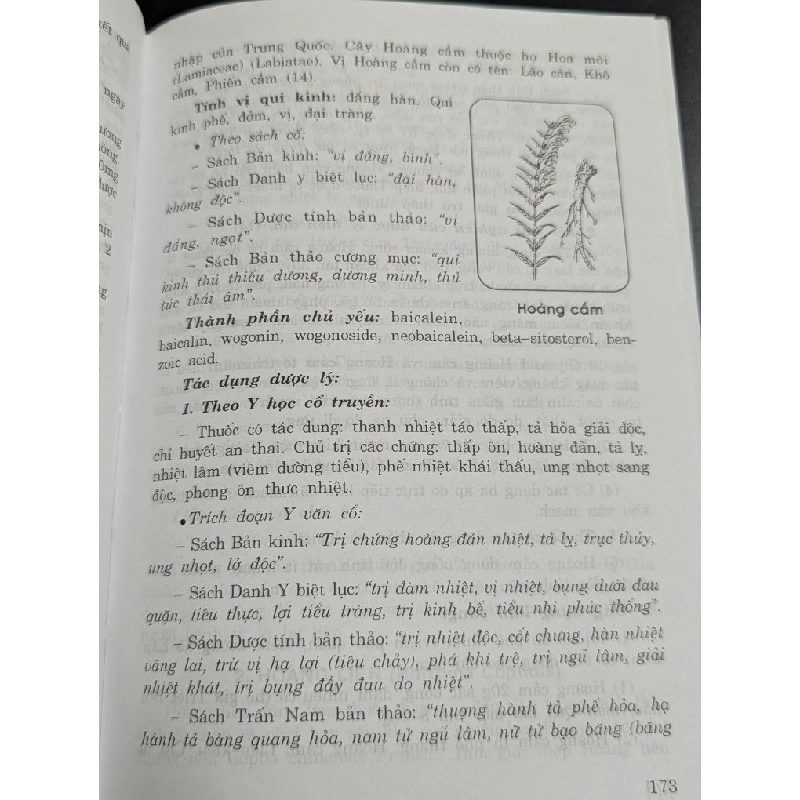 nhập của Trung Quốc. Cây Hoàng cầm thuộc họ Hoa môi
(Lamiaceae) (Labiatae). Vị Hoàng cầm còn có tên: Lão cần, Khô
cầm, Phiến cầm (14).
Tính vị qui kinh: đắng hàn. Qui
kinh phế, đởm, vị, đại tràng.
• Theo sách cổ:
– Sách Bản kinh: "vị đắng, bình".
– Sách Danh y biệt lục: "đại hàn,
không độc".
– Sách Dược tính bản thảo: "vị
đắng, ngọt".
– Sách Bản thảo cương mục: "qui
kinh thủ thiếu dương, dương minh, thủ
túc thái âm".
Hoàng cầm
Thành phần chủ yếu: baicalein,
baicalin, wogonin, wogonoside, neobaicalein, beta–sitosterol, ben-
zoic acid.
Tác dụng dược lý:
1. Theo Y học cổ truyền:
– Thuốc có tác dụng: thanh nhiệt táo thấp, tả hỏa giải độc,
chỉ huyết an thai. Chủ trị các chứng: thấp ôn, hoàng đản, tả lỵ,
nhiệt lâm (viêm đường tiểu), phế nhiệt khái thấu, ung nhọt sang
độc, phong ôn thực nhiệt.
• Trích đoạn Y văn cổ:
– Sách Bản kinh: "Trị chứng hoàng đản nhiệt, tả lỵ, trục thủy,
ung nhọt, lở độc".
– Sách Danh Y biệt lục: "trị đàm nhiệt, vị nhiệt, bụng dưới đau
quặn, tiêu thực, lợi tiểu tràng, trị kinh bế, tiểu nhi phúc thống".
– Sách Dược tính bản thảo: "trị nhiệt độc, cốt chưng, hàn nhiệt
vãng lai, trừ vị hạ lợi (tiêu chảy), phá khí trệ, trị ngũ lâm, giải
nhiệt khát, trị bụng đầy đau do nhiệt"
– Sách Trấn Nam bản thảo: "thượng hành tả phế hỏa, hạ
hành tả bàng quang hỏa, nam tử ngũ lâm, nữ tử bạo băng (băng
173